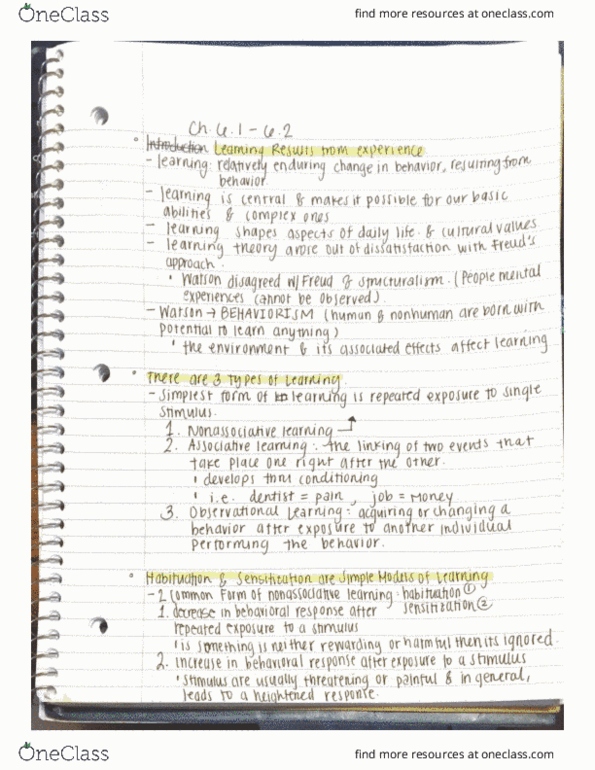 OneClass
find more resources at oneclass.com
Ch. 6.1 - 6.2
Introduction Learning Results from experience
- learning: relatively enduring change in behavior, resulting from
behavior.
- learning is central & makes it possible for our basic
abilities & complex ones
- learning shapes aspects of daily life & cultural values
- learning theory arose out of dissatisfaction with Freud's
approach.
• Watson disagreed w/ Freud & structuralism. (People mental
experiences cannot be observed).
- Watson → BEHAVIORISM (human & nonhuman are born with
potential to learn anything)
• the environment & its associated effects affect learning
There are 3 types of Learning
- Simplest form of learning is repeated exposure to single
stimulus.
1. Nonassociative learning
2. Associative learning: the linking of two events that
take place one right after the other.
• develops thru conditioning
• i.e. dentist = pain, job = money
3. Observational Learning: acquiring or changing a
behavior after exposure to another individual
performing the behavior.
Habituation & Sensitization are Simple Models of Learning
- 2 common Form of nonassociative learning: habituation ①
sensitization ②
1. decrease in behavioral response after
repeated exposure to a stimulus
• is something is neither rewarding or harmful then its ignored
2. increase in behavioral response after exposure to a stimulus
• Stimulus are usually threatening or painful & in general,
leads to a heightened response.
OneClass
find more resources at oneclass.com